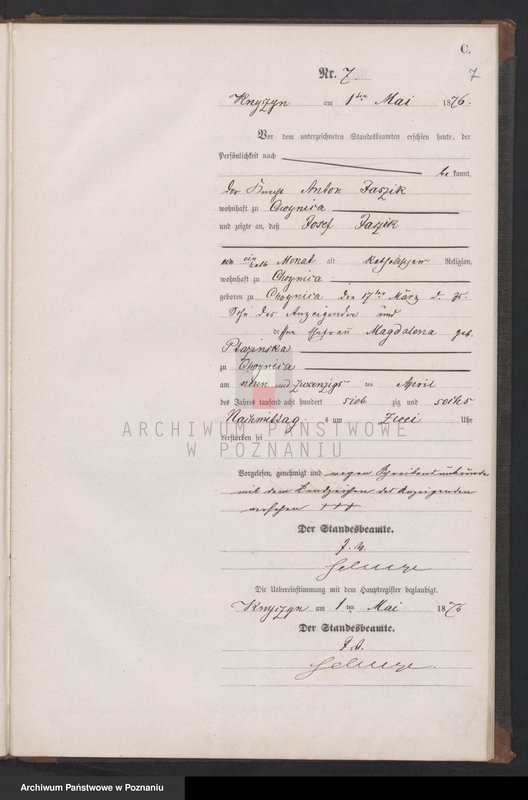 C.
Nr. 7. 7
Knyszyn am 1ten Mai 1876.
Vor dem unterzeichneten Standesbeamten erschien heute, der
Persönlichkeit nach
be kannt,
der Anton Jaszik
wohnhaft zu Choynica
und zeigte an, daß Josef Jaszik
ein halb Monat alt katholischer Religion,
wohnhaft zu Choynica
geboren zu Choynica den 17ten März d. Js.
Sohn des Anzeigenden und
dessen Ehefrau Magdalena geb.
zu Choynica
am neun und zwanzigs ten April
des Jahres tausend acht hundert sieb zig und sechs
Nachmittags um zwei Uhr
verstorben sei
Vorgelesen, genehmigt und wegen Schreibensunkunde
mit dem Handzeichen des Anzeigenden
versehen +++
Der Standesbeamte.
Die Uebereinstimmung mit dem Hauptregister beglaubigt.
Knyszyn am 1ten Mai 1876
Der Standesbeamte.
ARCHIWUM PAŃSTWOWE
W POZNANIU
Archiwum Państwowe w Poznaniu